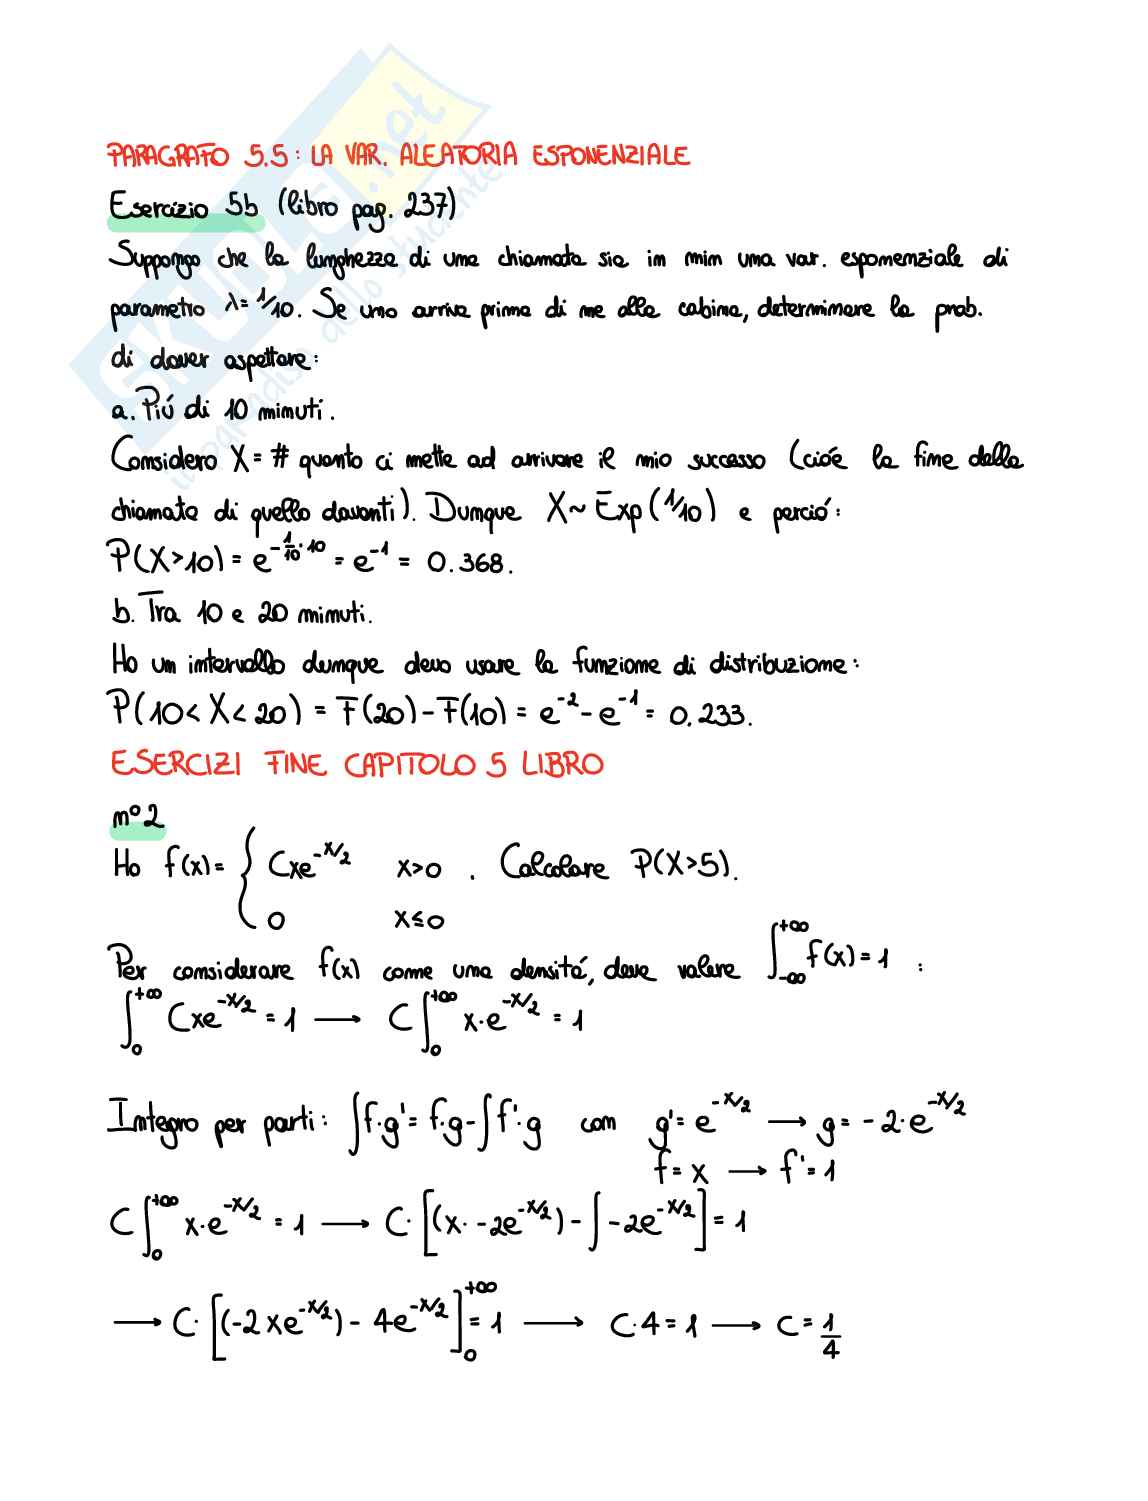 PARAGRAFO 5.5: LA VAR. ALEATORIA ESPONENZIALE
Esercizio 5b (libro pag. 237)
Suppongo che la lunghezza di una chiamata sia in min una var. esponenziale di
parametro λ=1/10. Se uno arriva prima di me alla cabina, determinare la prob.
di dover aspettare:
a. Piú di 10 minuti.
Considero X = # quanto ci mette ad arrivare il mio successo (cioé la fine della
chiamata di quello davanti). Dunque X~Exp(1/10) e perció:
P(X>10) = e^{-1/10·10} = e^{-1} = 0.368.
b. Tra 10 e 20 minuti.
Ho un intervallo dunque devo usare la funzione di distribuzione:
P(10<X<20) = F(20)-F(10) = e^{-2} - e^{-1} = 0.233.
ESERCIZI FINE CAPITOLO 5 LIBRO
n°2
Ho f(x) = { Cxe^{-x/2} x>0 . Calcolare P(X>5).
0 x≤0
Per considerare f(x) come una densitá, deve valere ∫_{-∞}^{+∞} f(x) = 1 :
∫_0^{+∞} Cxe^{-x/2} = 1 → C∫_0^{+∞} x·e^{-x/2} = 1
Integro per parti: ∫f·g' = f·g - ∫f'·g con g' = e^{-x/2} → g = -2·e^{-x/2}
f = x → f' = 1
C∫_0^{+∞} x·e^{-x/2} = 1 → C·[(x·-2e^{-x/2}) - ∫-2e^{-x/2}] = 1
→ C·[(-2xe^{-x/2}) - 4e^{-x/2}]_0^{+∞} = 1 → C·4 = 1 → C = 1/4
SKUOLA.net